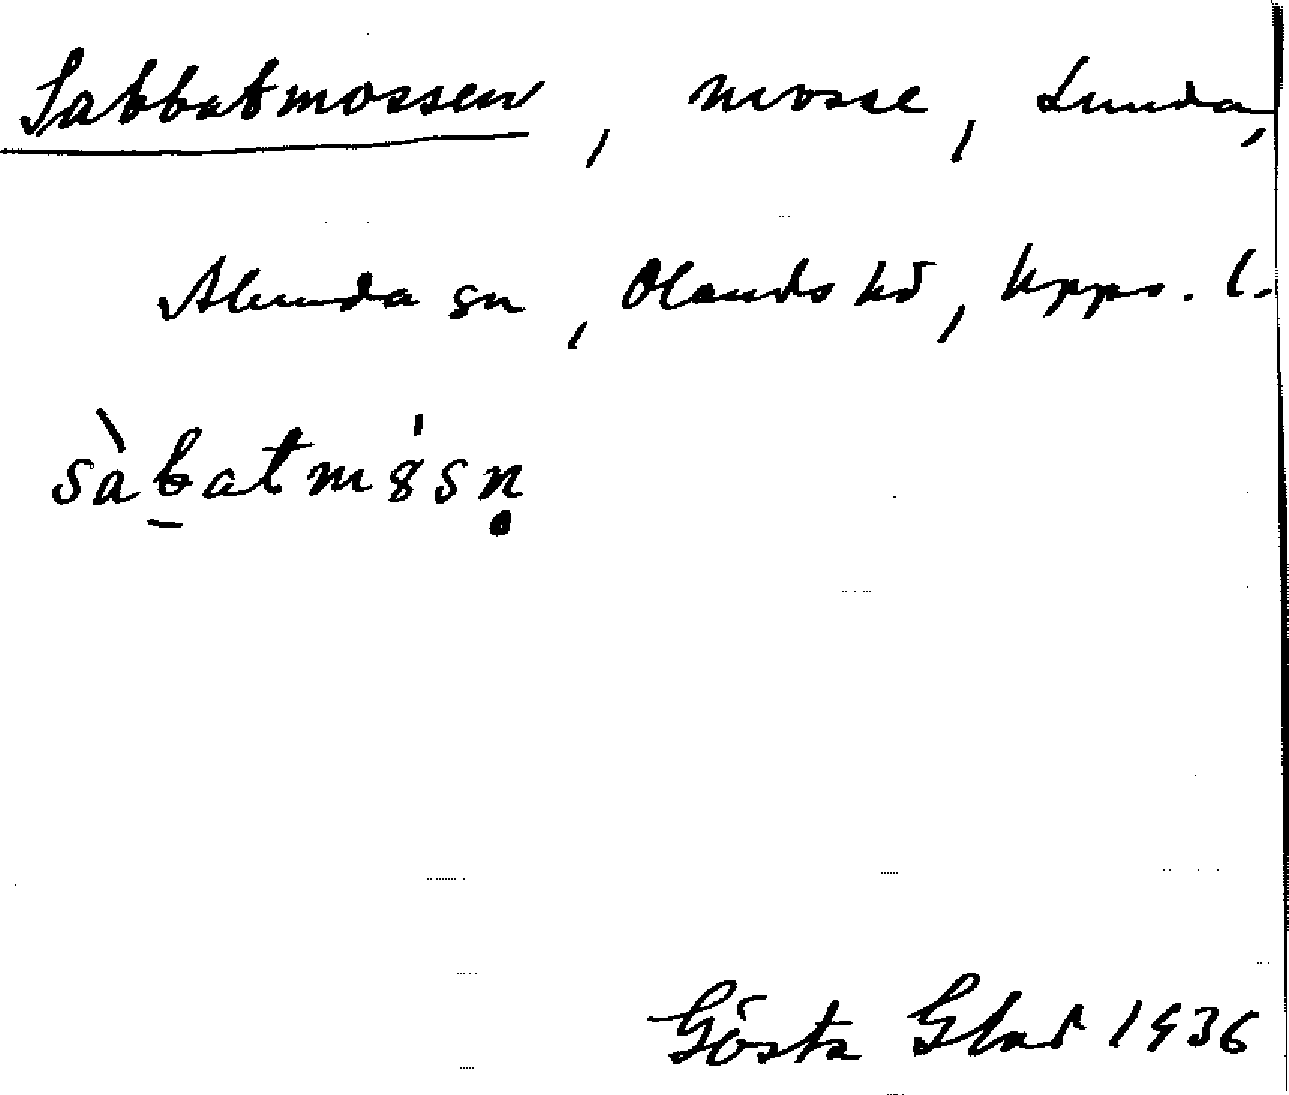 Sabbatmossen, mosse, Lunda,
Alunda sn, Olands hd, Upps. l.
sàb̲atmȯsṇ
Gösta Glad 1936